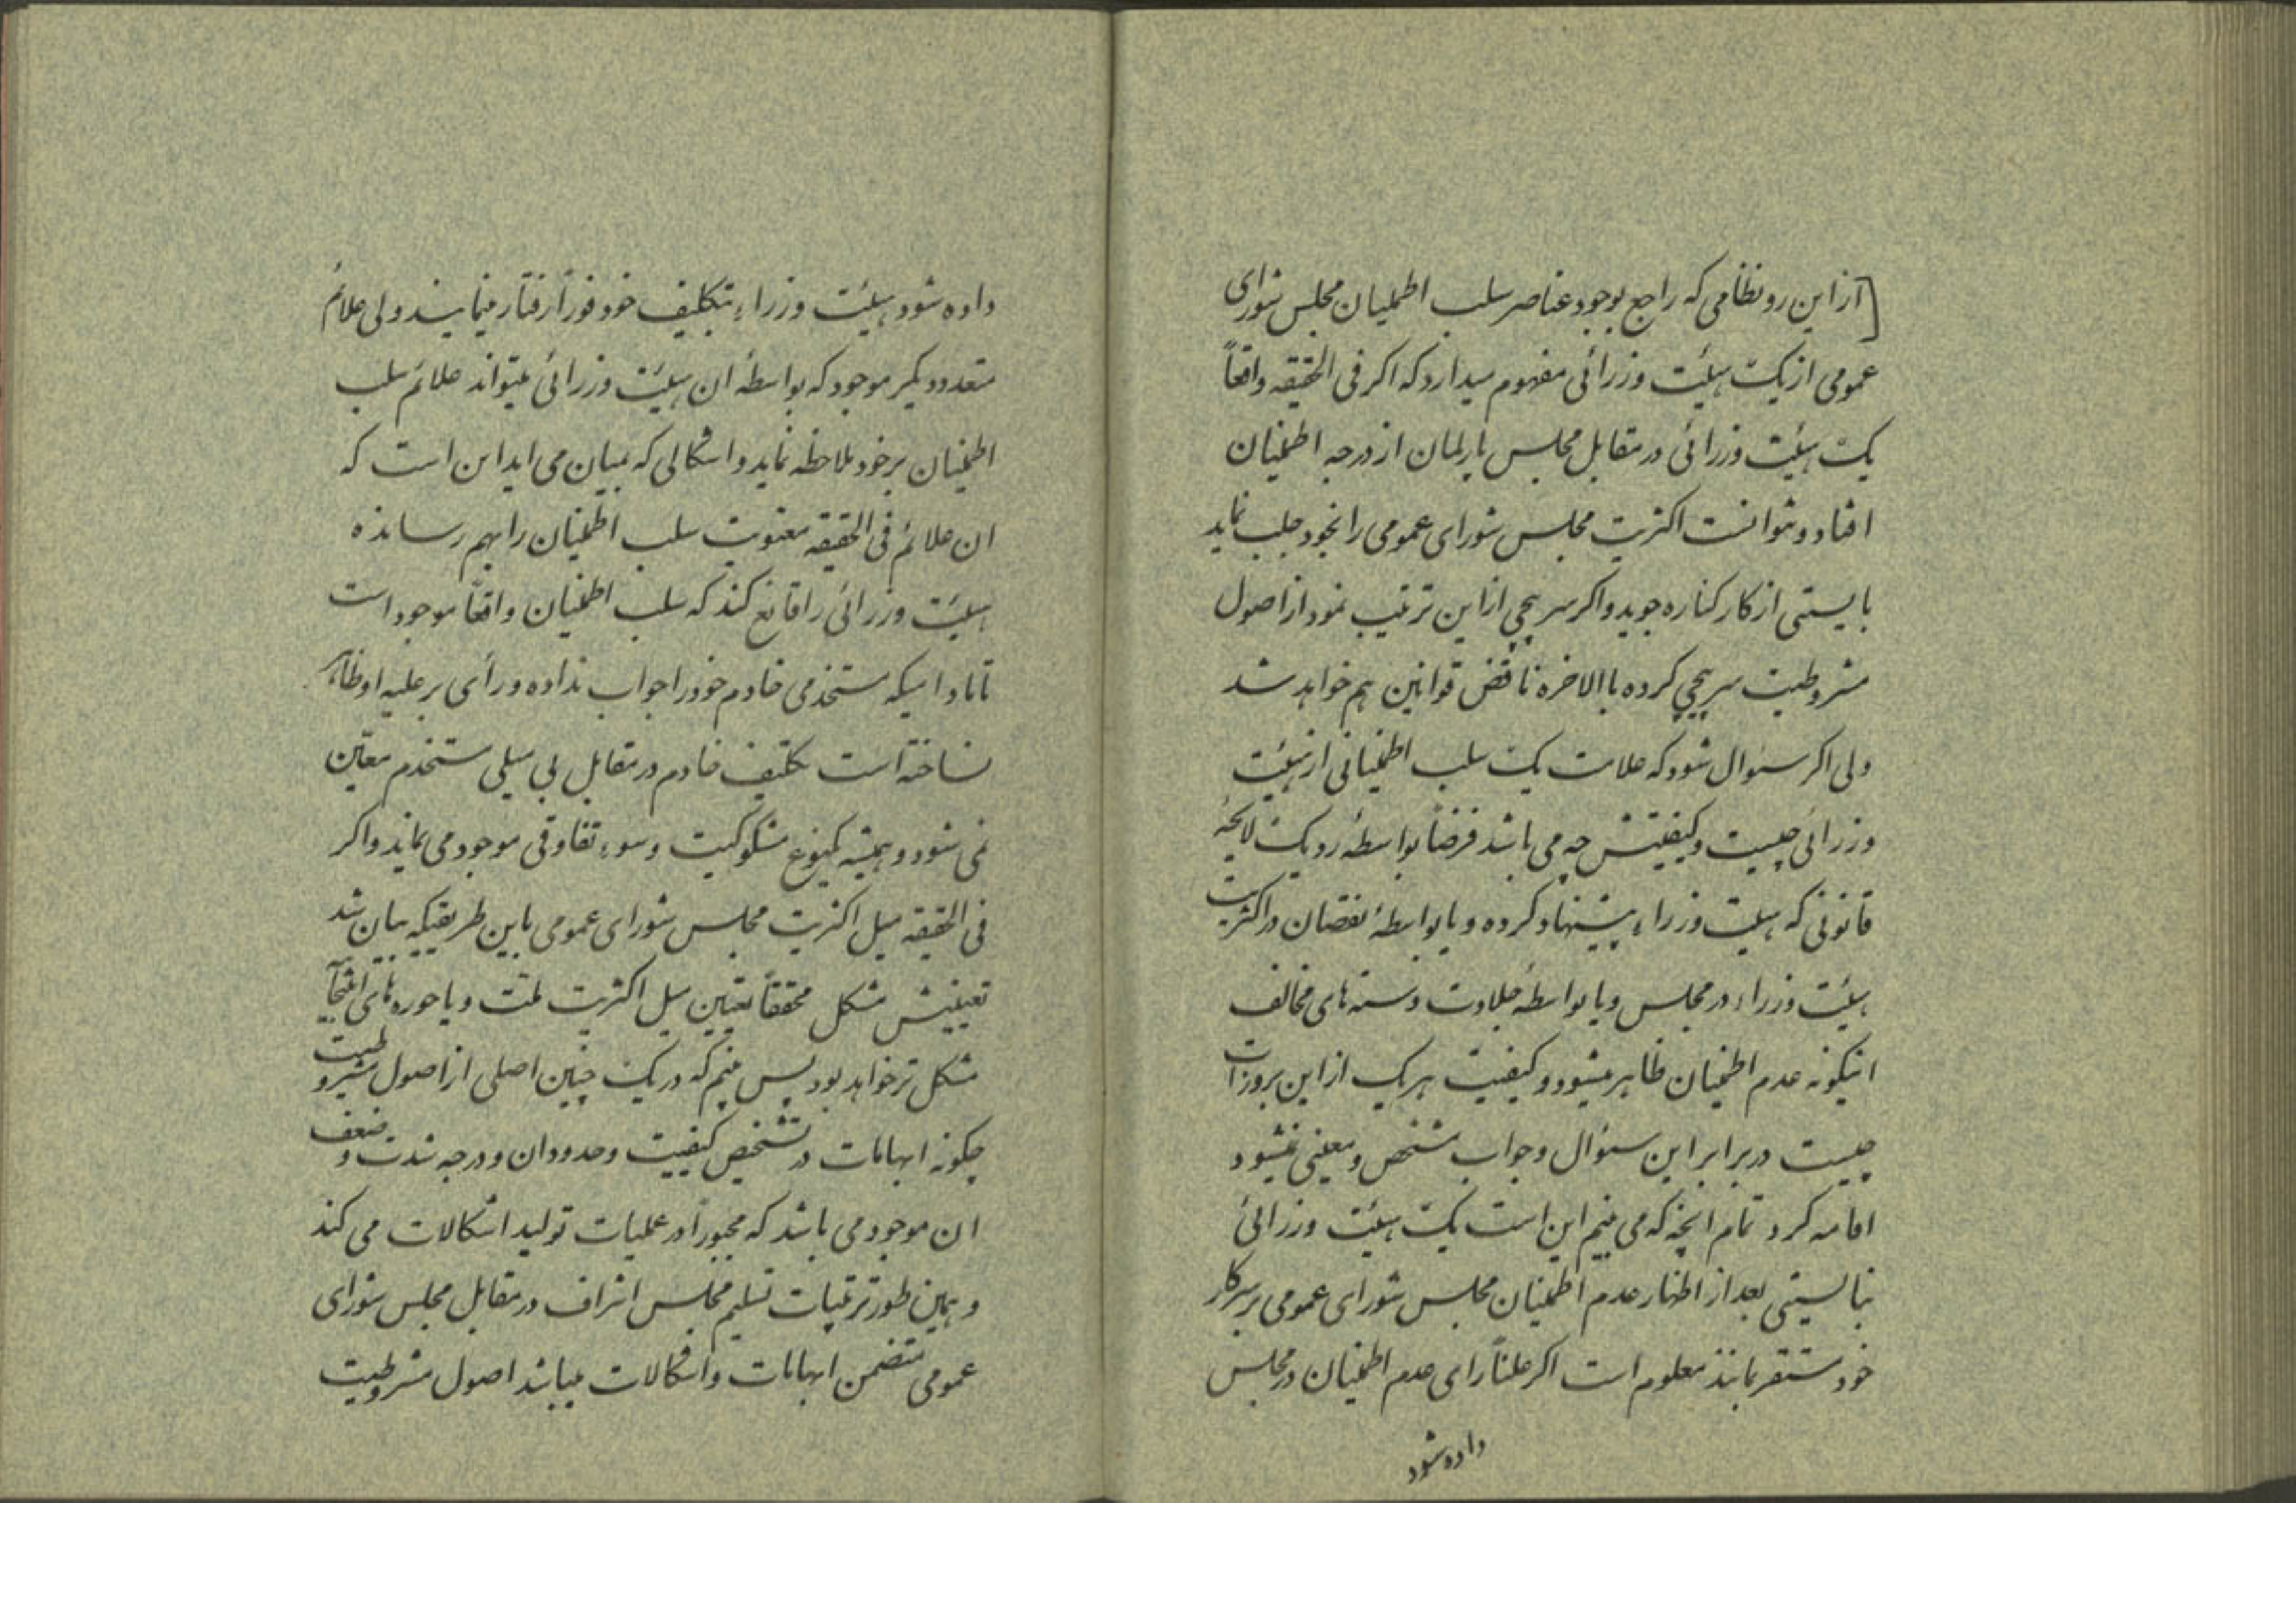 [از این رو نظامی که راجع بوجود عناصر سلب اطمینان مجلس شورای
عمومی از یک هیئت وزرائی مفهوم میدارد که اکر فی الحقیقه واقعاً
یک هیئت وزرائی در مقابل مجلس پارلمان از درجه اطمینان
افتاد و نتوانست اکثریت مجلس شورای عمومی را بخود جلب نماید
بایستی از کار کناره جوید و اکر سرپیچی از این ترتیب نمود از اصول
مشروطیت سرپیچی کرده باالاخره ناقض قوانین هم خواهد شد
ولی اکر سئوال شود که علامت یک سلب اطمینانی از هیئت
وزرائی چیست و کیفیتش چه می باشد فرضاً بواسطهٔ رد یک لایحهٔ
قانونی که هیئت وزراء پیشنهاد کرده و یا بواسطهٔ نقصان در اکثریت
هیئت وزراء در مجلس و یا بواسطهٔ جلادت دسته های مخالف
اینکونه عدم اطمینان ظاهر میشود و کیفیت هر یک از این بروزات
چیست در برابر این سئوال و جواب مشخص و معینی نمیشود
اقامه کرد تمام انچه که می بینیم این است یک هیئت وزرائی
نبایستی بعد از اظهار عدم اطمینان مجلس شورای عمومی بر سر کار
خود مستقر بمانند معلوم است اکر علناً رای عدم اطمینان در مجلس
داده شود
داده شود هیئت وزراء بتکلیف خود فوراً رفتار مینمایند ولی علائم
متعدد دیکر موجود که بواسطهٔ ان هیئت وزرائی میتواند علائم سلب
اطمینان بر خود ملاحظه نماید و اشکالی که بمیان می اید این است که
ان علائم فی الحقیقه معنویت سلب اطمینان را بهم رسانده
هیئت وزرائی را قانع کند که سلب اطمینان واقعاً موجود است
تا مادامیکه مستخدمی خادم خود را جواب نداده و رأی بر علیه او ظاهر
نساخته است تکلیف خادم در مقابل بی میلی مستخدم معین
نمی شود و همیشه یکنوع مشکوکیت و سوء تفاوقی موجود می ماند و اکر
فی الحقیقه میل اکثریت مجلس شورای عمومی باین طریقیکه بیان شد
تعیینش مشکل محققاً تعیین میل اکثریت ملت و یا حوره های انتخابیّه
مشکل تر خواهد بود پس میبینیم که در یک چنین اصلی از اصول مشروطیت
چکونه ابهامات در تشخیص کیفیت و حدود ان و درجه شدت و ضعف
ان موجود می باشد که مجبوراً در عملیات تولید اشکالات می کند
و همین طور ترتیبات تسلیم مجلس اشراف در مقابل مجلس شورای
عمومی متضمن ابهامات و اشکالات میباشد اصول مشروطیت